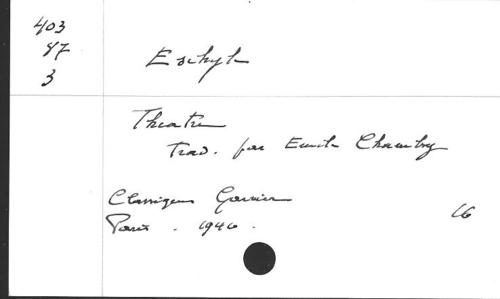 403
87
3
Eschyle
Théatre
Trad. par Emile Chambry
Classiques Garnier
Paris . 1946 .
16